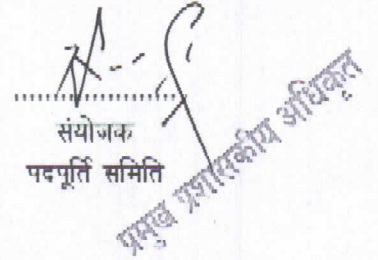 संयोजक
पदपूर्ति समिति
प्रमुख प्रशासकीय अधिकृत